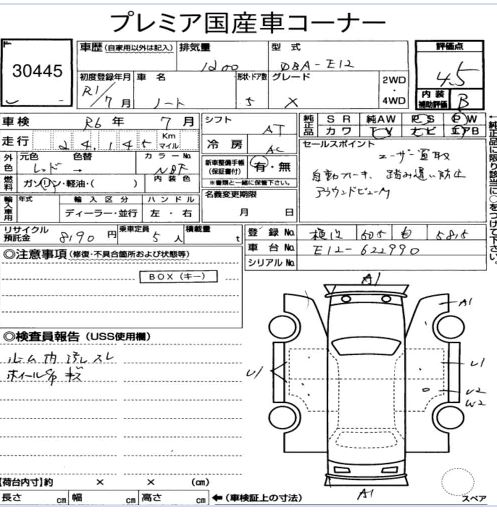 プレミア国産車コーナー
30445
車歴 (自家用以外は記入) 排気量 1200 型式 DBA-E12
評価点 4.5
内装補助評価 B
初度登録年月 R1/7月 車名 ノート 形状・ドア数 5 グレード X 2WD・4WD
車検 R6年 7月 シフト AT
純正品 SR 純AW PS PW
カワ TV ナビ エアB
走行 24,145 Km マイル 冷房 AC
セールスポイント
ユーザー買取
自動ブレーキ、踏み違い防止
アラウンドビューM
外色 元色 レッド 色替 → カラーNo. NBF
燃料 ガソリン・軽油・( ) 内装色
新車整備手帳(保証書付) 有・無
※書類と一緒に保管下さい
名義変更期限 月 日
輸入車用 年式 輸入区分 ディーラー・並行 ハンドル 左・右
←純正品に限り該当に○をつけて下さい。
リサイクル預託金 8190円 乗車定員 5人 積載量 t
登録No. 横浜 505 も 5815
車台No. E12-622990
シリアルNo.
◎注意事項 (修復・不具合箇所および状態等)
BOX(キー)
◎検査員報告 (USS使用欄)
ルーム内汚レスレ
ホイールキズ
A1
A1
U1
U1
U2
W2
A1
【荷台内寸】約 × × (cm)
長さ cm 幅 cm 高さ cm ←(車検証上の寸法)
スペア